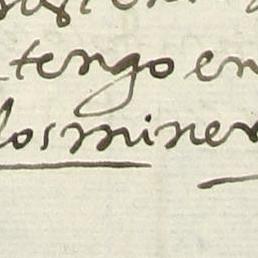 tengo en
los miner